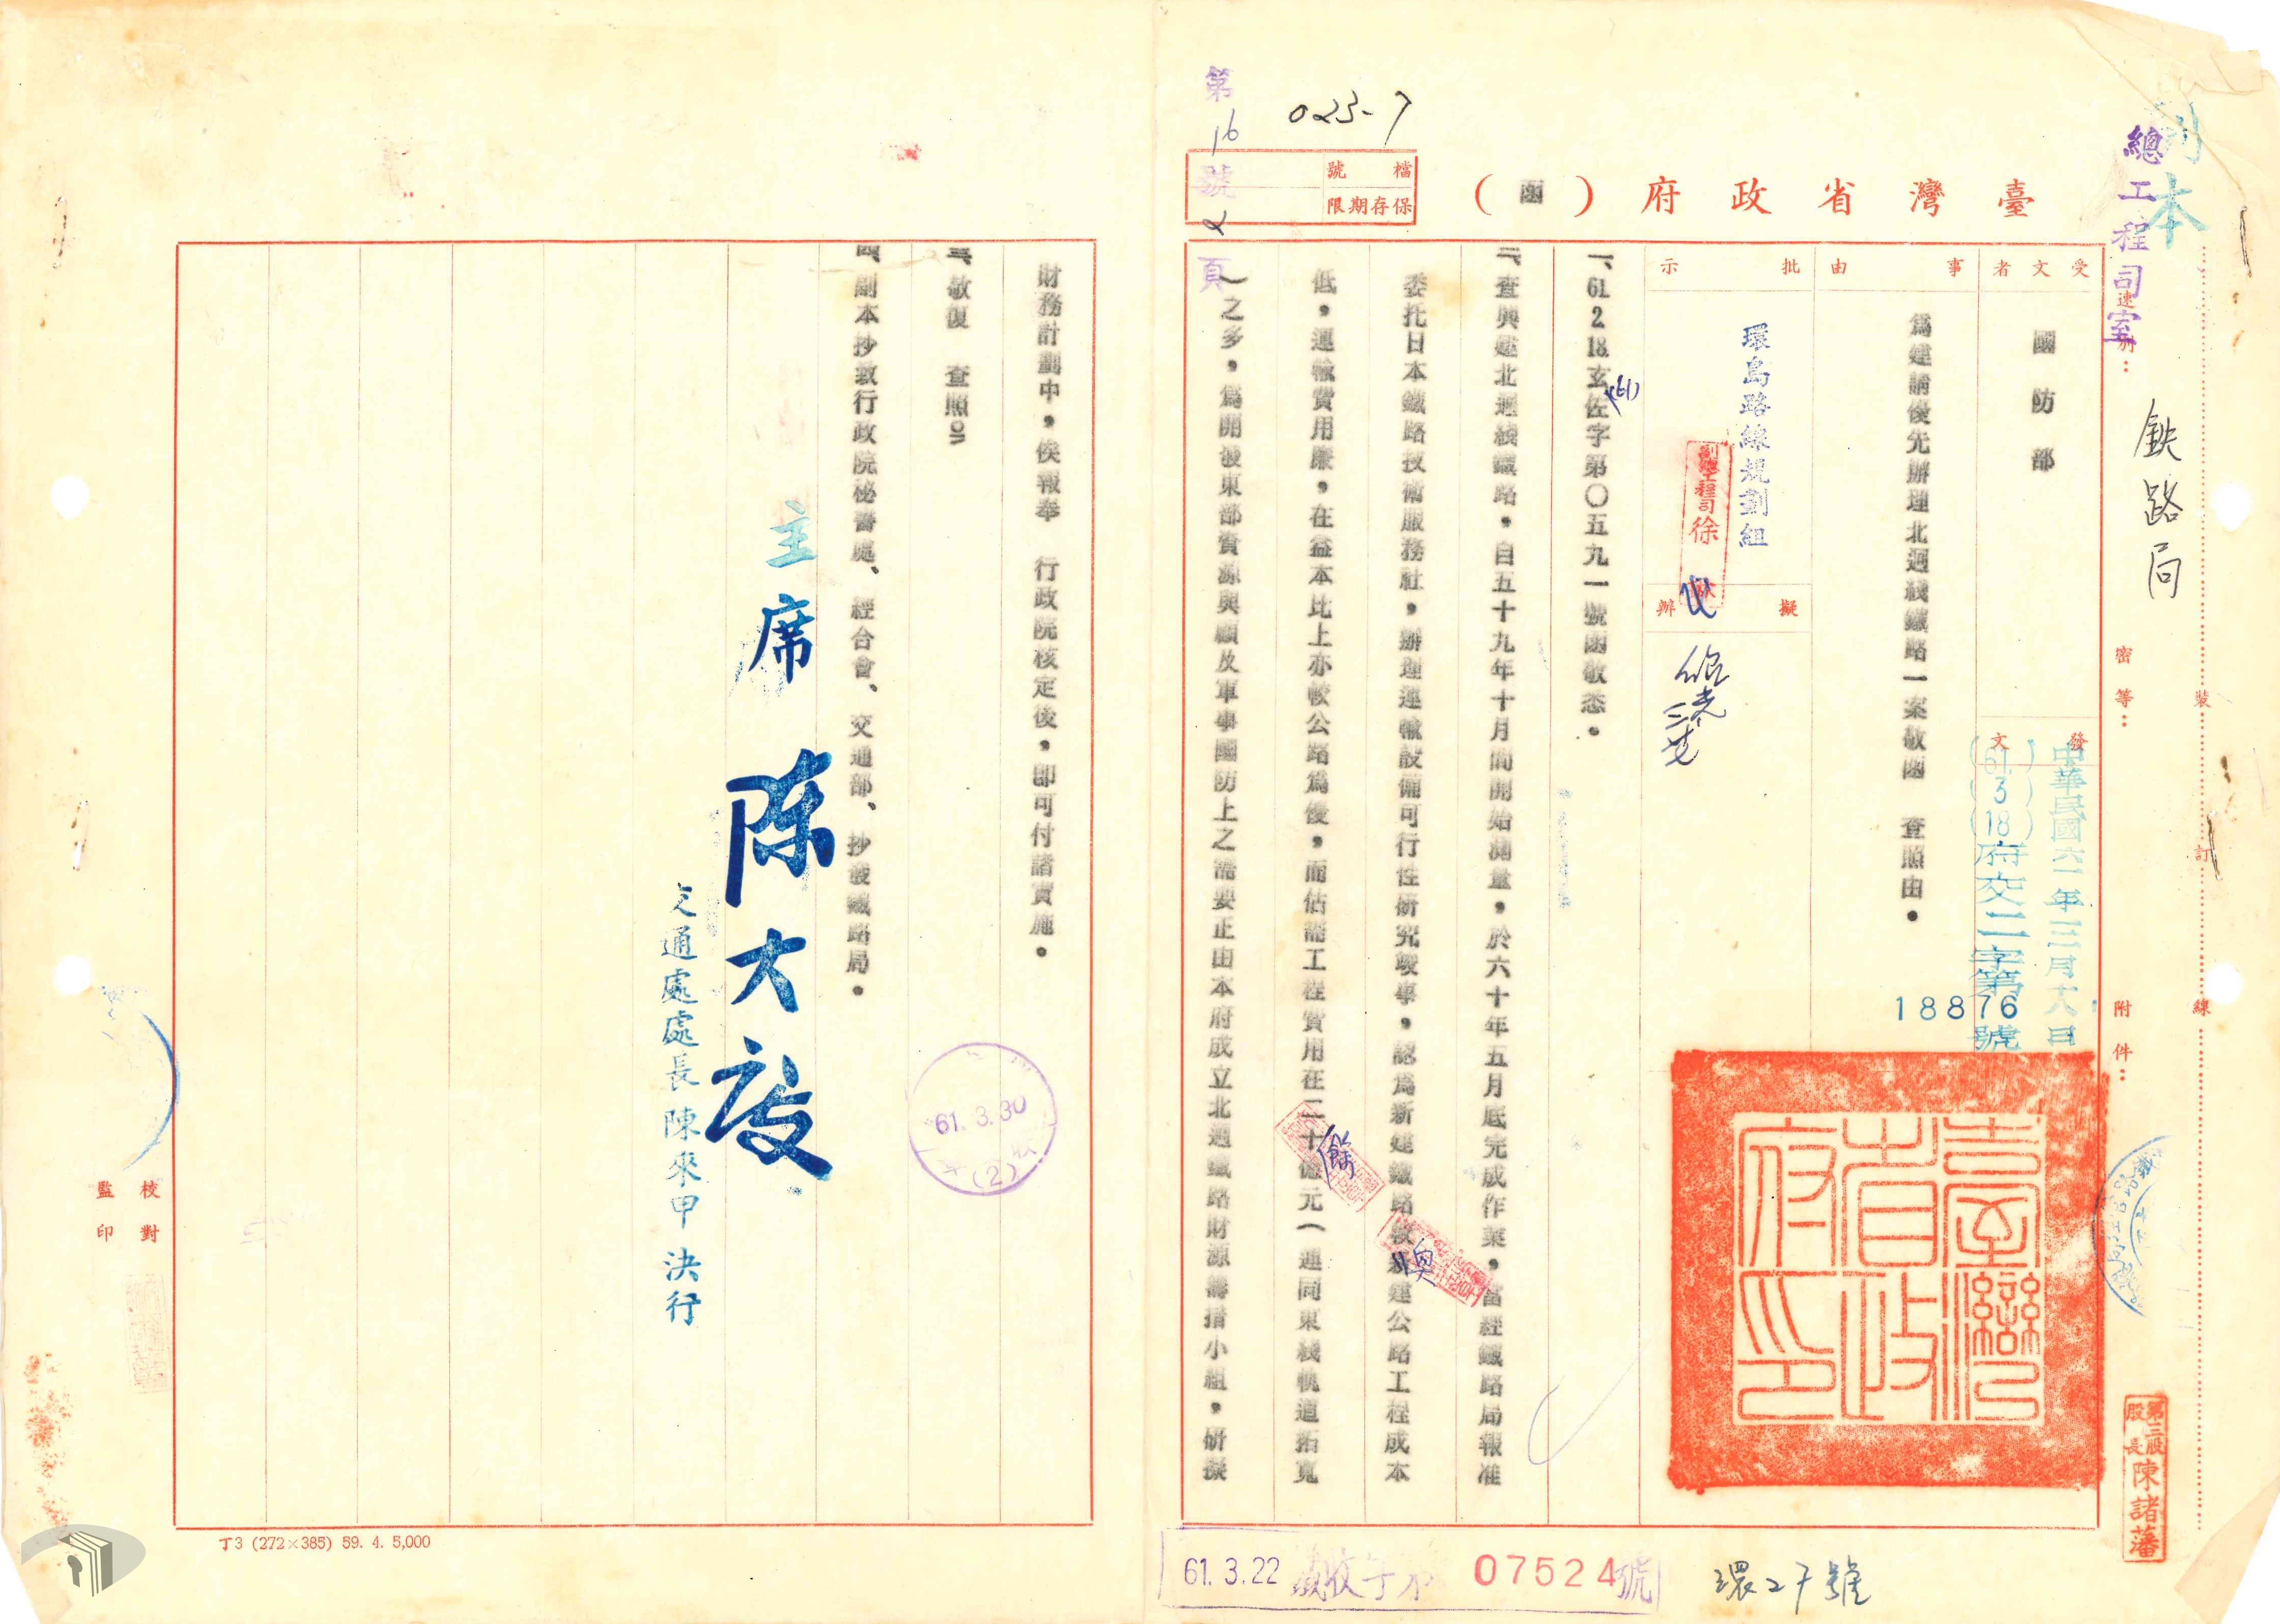 副本
總工程司室
鉄路局
速別：
密等：
附件：
裝
訂
線
臺灣省政府（函）
第16號2頁
023-7
檔號
保存期限
受文者
國防部
事由
為建請優先辦理北迴綫鐵路一案敬函 查照由。
批示
環島路線規劃組
副總工程司徐
擬辦
發文
中華民國六一年三月十八日
(61)(3)(18)府交二字第18876號
臺灣省政府印
一、61 2 18玄佐(61)字第〇五九一號函敬悉。
二、查興建北迴綫鐵路，自五十九年十月間開始測量，於六十年五月底完成作業，當經鐵路局報准
委托日本鐵路技術服務社，辦理運輸設備可行性研究竣事，認為新建鐵路較新建公路工程成本
低，運輸費用廉，在益本比上亦較公路為優，而估需工程費用在二十餘億元（連同東綫軌道拓寬
）之多，為開發東部資源與顧及軍事國防上之需要正由本府成立北迴鐵路財源籌措小組，研擬
財務計劃中，俟報奉 行政院核定後，即可付諸實施。
三、敬復 查照
四、副本抄致行政院秘書處、經合會、交通部、抄發鐵路局。
主席 陳大慶
交通處處長陳來甲決行
61.3.30
(2)
校對
監印
第三股
股長陳諸藩
丁3 (272×385) 59. 4. 5,000
61.3.22 鐵收字第 07524號
環27號